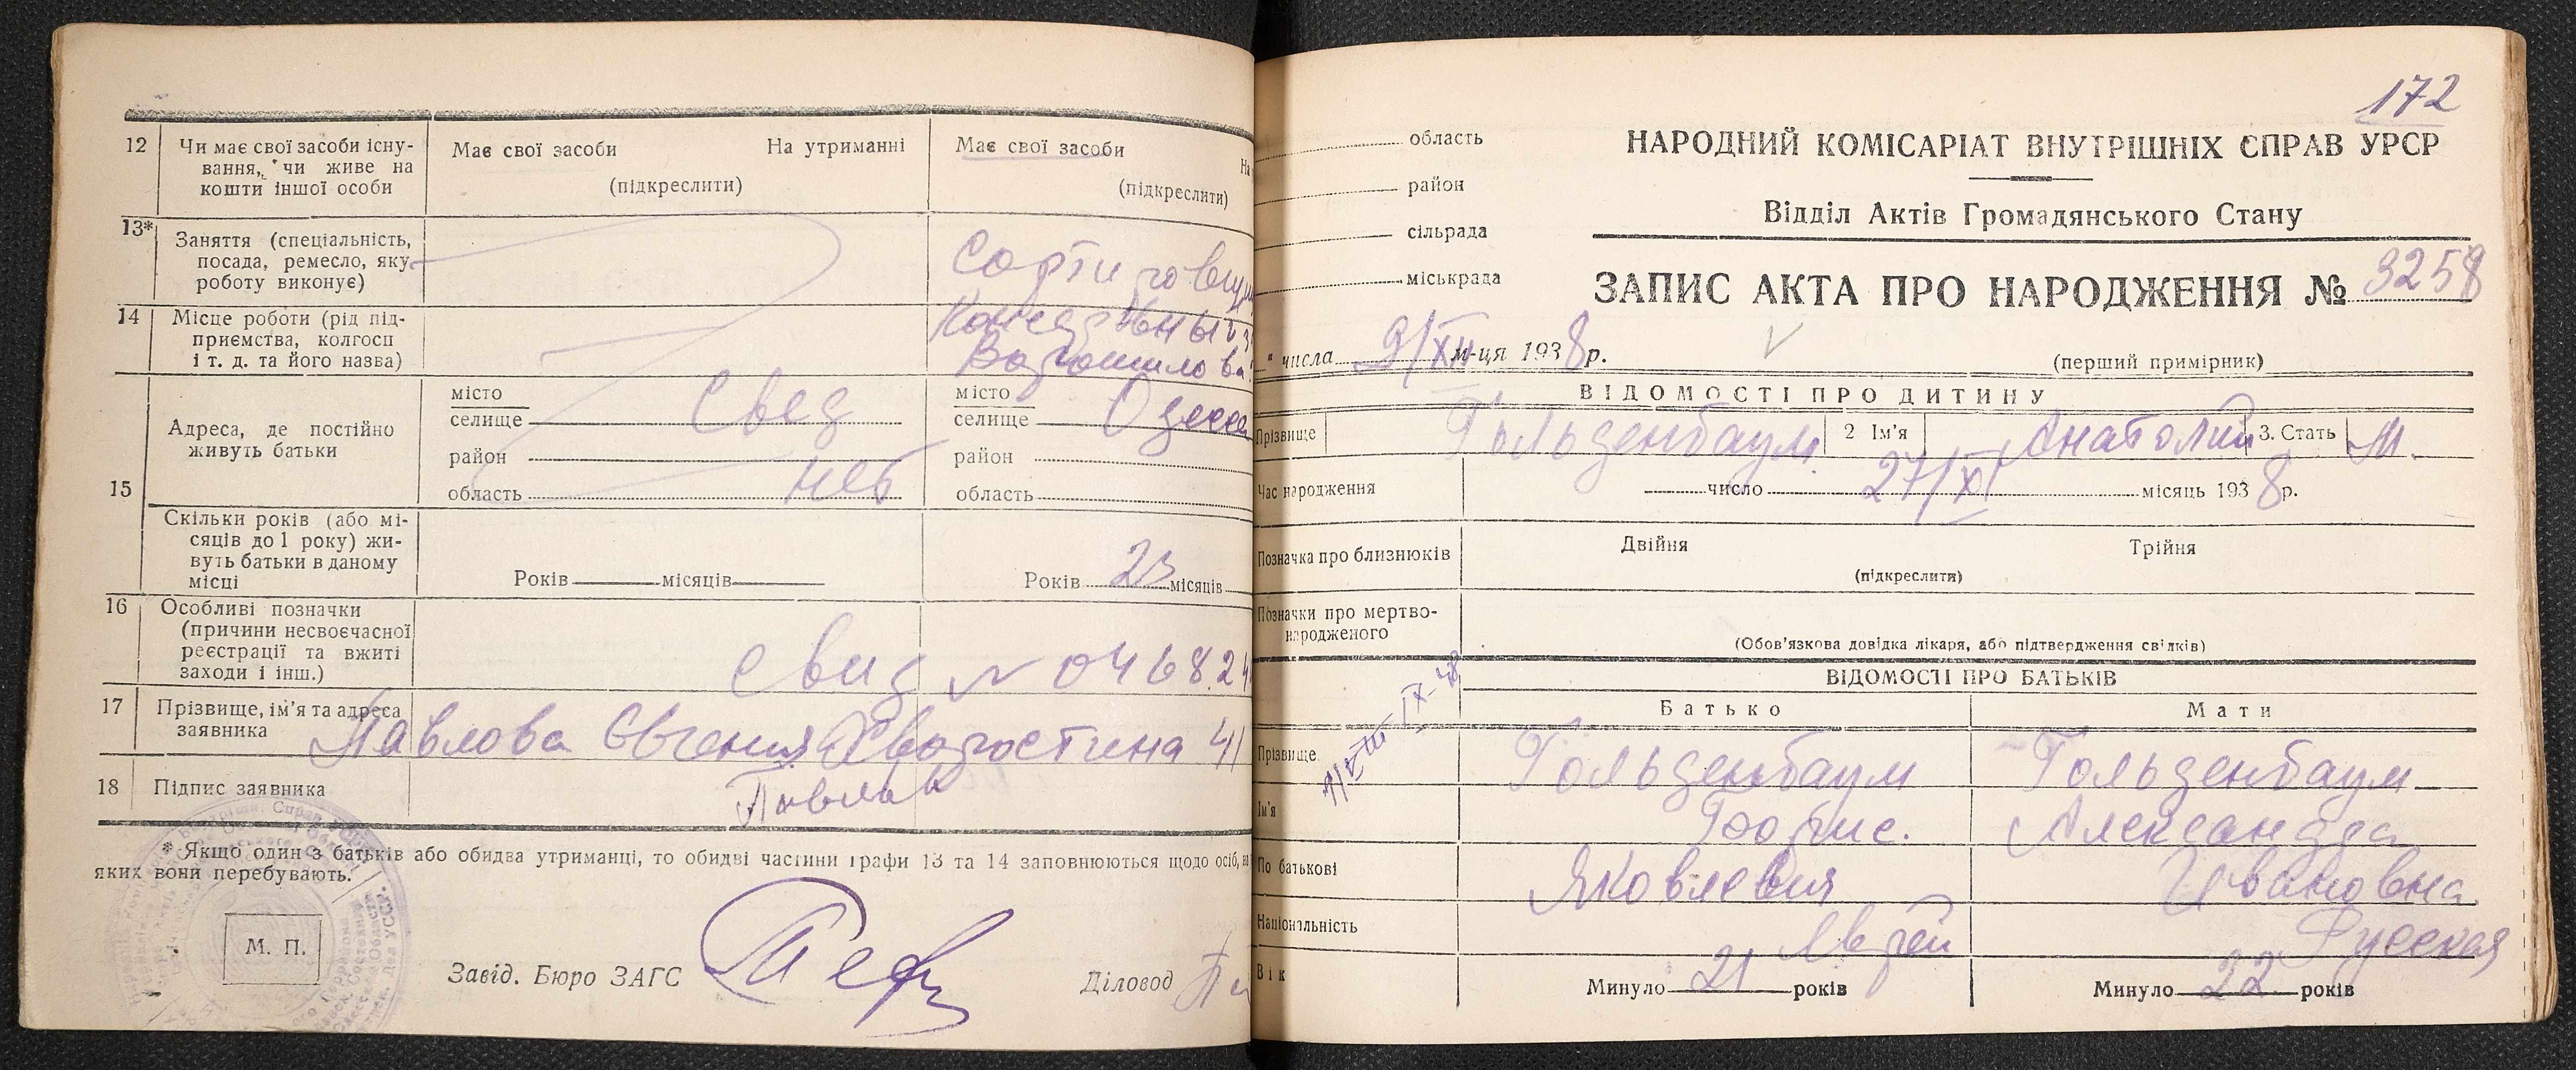 12 Чи має свої засоби існу-
вання, чи живе на
кошти іншої особи
Має свої засоби На утриманні
(підкреслити)
Має свої засоби На
(підкреслити)
13* Заняття (спеціальність,
посада, ремесло, яку
роботу виконує)
14 Місце роботи (рід під-
приємства, колгосп
і т. д. та його назва)
Ворошилова
15 Адреса, де постійно
живуть батьки
місто
селище
район
область
свед
нет
місто
селище Одесса
район
область
Скільки років (або мі-
сяців до 1 року) жи-
вуть батьки в даному
місці
Років місяців
Років 23 місяців
16 Особливі позначки
(причини несвоєчасної
реєстрації та вжиті
заходи і інш.)
Свид № 04682
17 Прізвище, ім'я та адреса
заявника
Павлова Евгения Хворостина 41
18 Підпис заявника
* Якщо один з батьків або обидва утриманці, то обидві частини графи 13 та 14 заповнюються щодо осіб, на
яких вони перебувають.
М. П.
Завід. Бюро ЗАГС
Діловод
172
область
район
сільрада
міськрада
НАРОДНИЙ КОМІСАРІАТ ВНУТРІШНІХ СПРАВ УРСР
Відділ Актів Громадянського Стану
ЗАПИС АКТА ПРО НАРОДЖЕННЯ № 3258
" числа 9/XII м-ця 1938 р.
(перший примірник)
ВІДОМОСТІ ПРО ДИТИНУ
Прізвище Гольденбаум 2 Ім'я Анатолий 3. Стать М.
Час народження число 27/XI місяць 1938 р.
Позначка про близнюків Двійня Трійня
(підкреслити)
Позначки про мертво-
народженого
(Обов'язкова довідка лікаря, або підтвердження свідків)
ВІДОМОСТІ ПРО БАТЬКІВ
Батько Мати
Прізвище Гольденбаум Гольденбаум
Ім'я Борис. Александра
По батькові Яковлевич Ивановна
Національність Еврей Русская
Вік Минуло 21 років Минуло 22 років